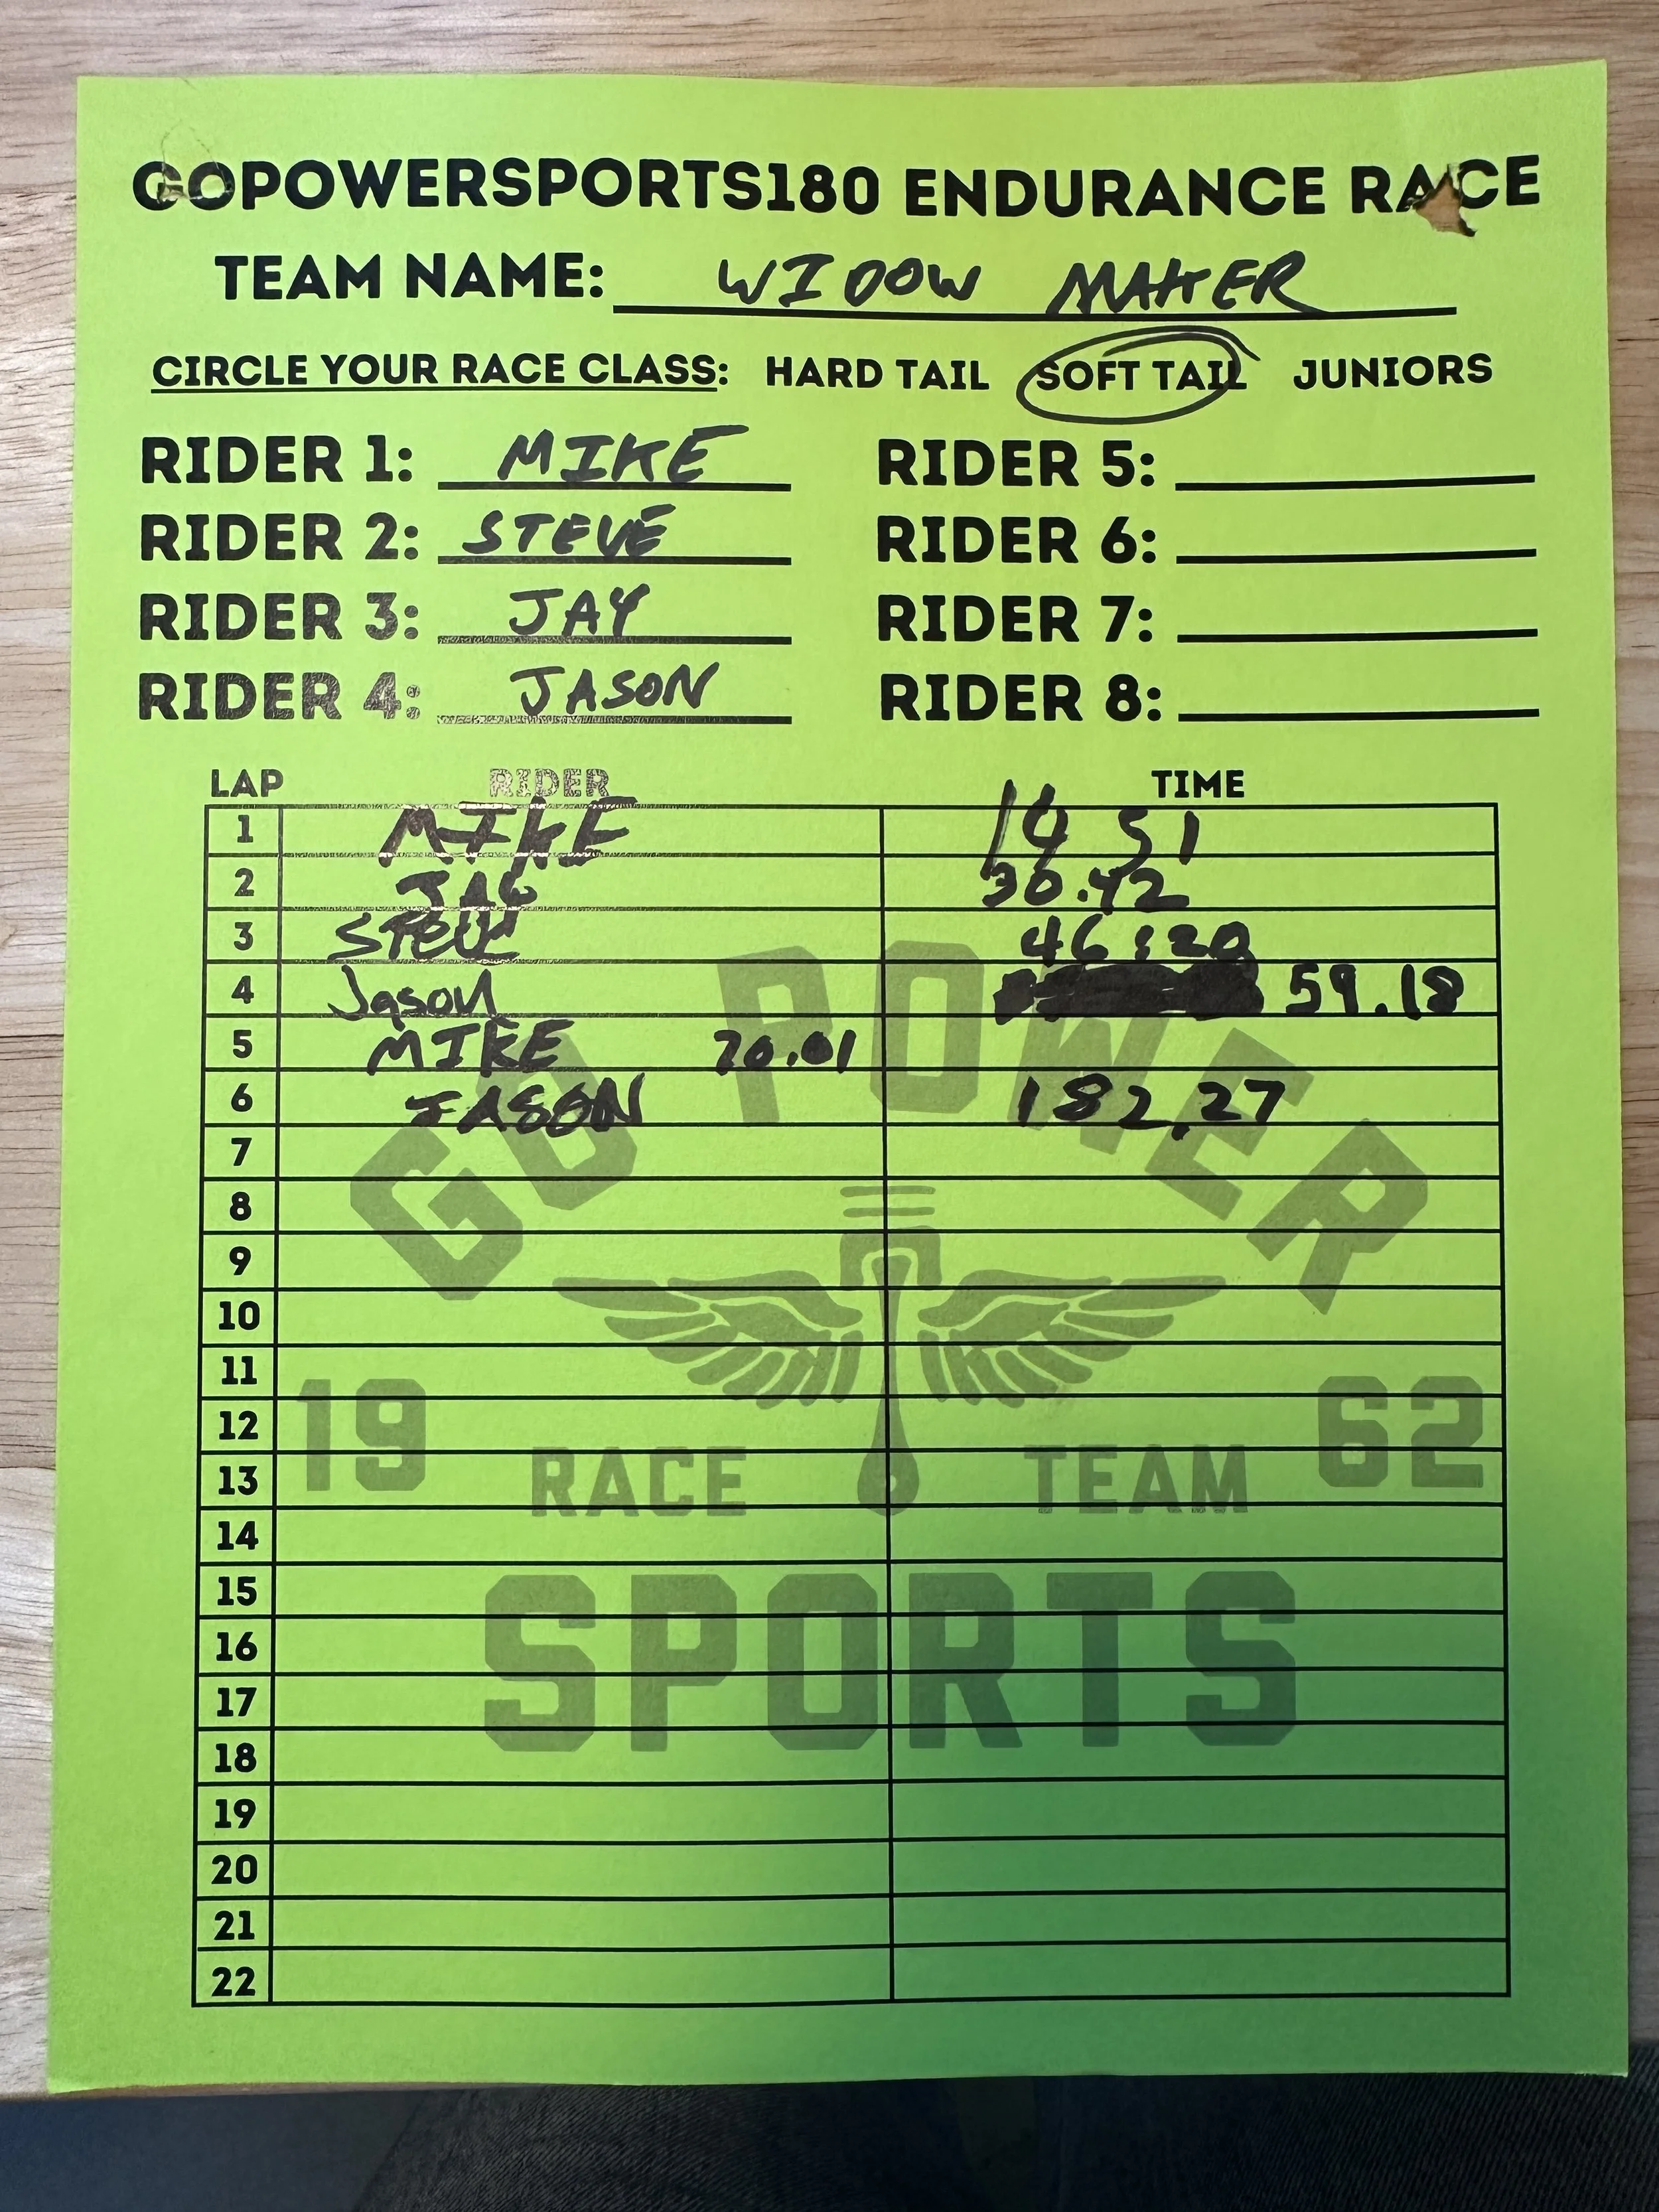 GOPOWERSPORTS180 ENDURANCE RACE
TEAM NAME: WIDOW MAKER
CIRCLE YOUR RACE CLASS: HARD TAIL SOFT TAIL JUNIORS
RIDER 1: MIKE RIDER 5:
RIDER 2: STEVE RIDER 6:
RIDER 3: JAY RIDER 7:
RIDER 4: JASON RIDER 8:
LAP RIDER TIME
1 MIKE 51
2 JAY 30.42
3 STEVE 46:20
4 Jason 59.18
5 MIKE 70.01
6 JASON 182.27
7
8
9
10
11
12
13
14
15
16
17
18
19
20
21
22
GO POWER
19 RACE TEAM 62
SPORTS